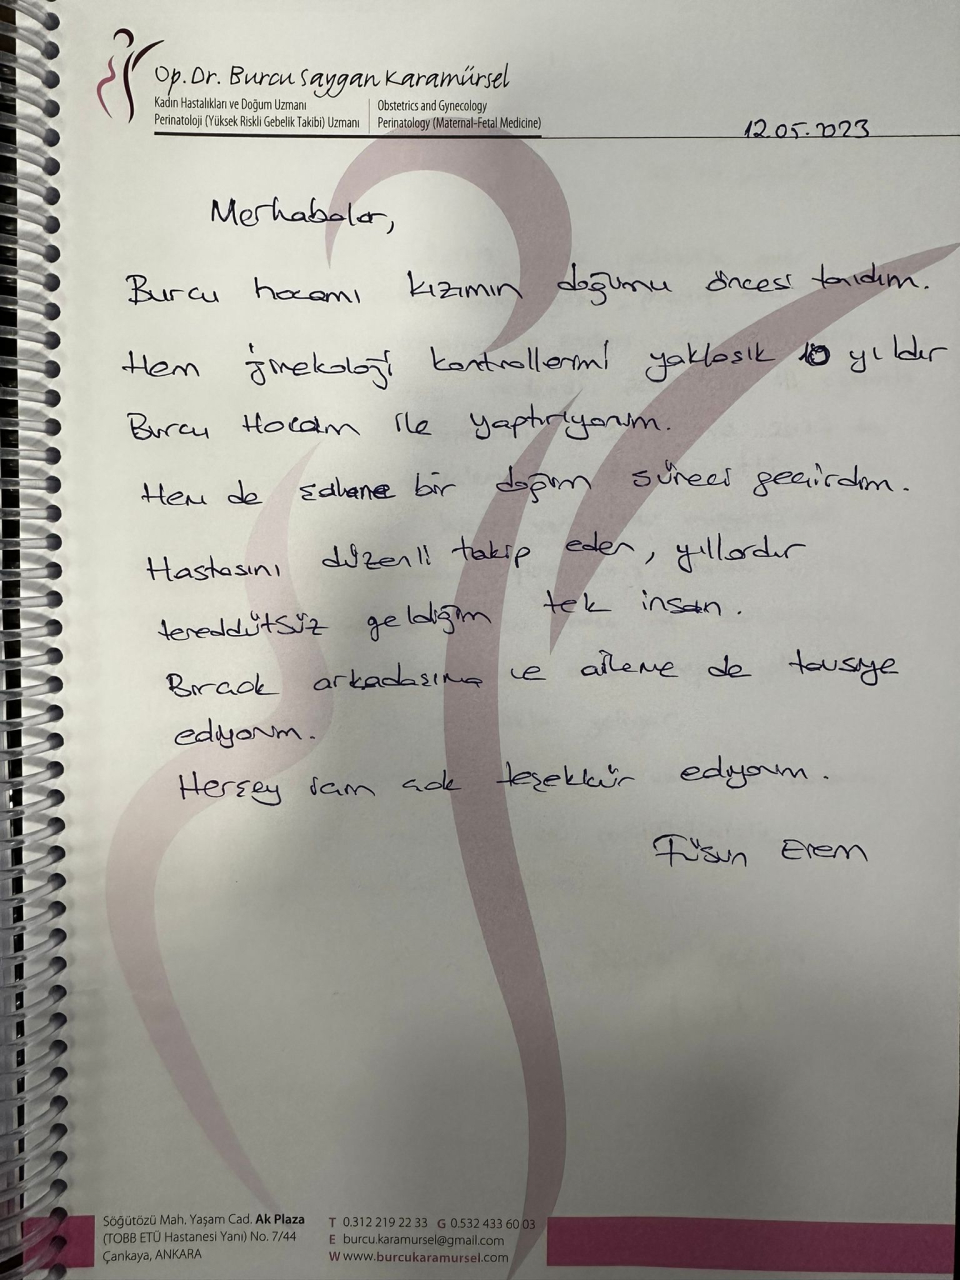 Op. Dr. Burcu Saygan Karamürsel
Kadın Hastalıkları ve Doğum Uzmanı
Perinatoloji (Yüksek Riskli Gebelik Takibi) Uzmanı
Obstetrics and Gynecology
Perinatology (Maternal-Fetal Medicine)
12.05.2023
Merhabalar,
Burcu hocamı kızımın doğumu öncesi tanıdım.
Hem jinekoloji kontrollerimi yaklaşık 10 yıldır
Burcu Hocam ile yaptırıyorum.
Hem de şahane bir doğum süreci geçirdim.
Hastasını düzenli takip eden, yıllardır
tereddütsüz geldiğim tek insan.
Birçok arkadaşıma ve aileme de tavsiye
ediyorum.
Herşey için çok teşekkür ediyorum.
Füsun Erem
Söğütözü Mah. Yaşam Cad. Ak Plaza
(TOBB ETÜ Hastanesi Yanı) No. 7/44
Çankaya, ANKARA
T 0.312 219 22 33 G 0.532 433 60 03
E burcu.karamursel@gmail.com
W www.burcukaramursel.com